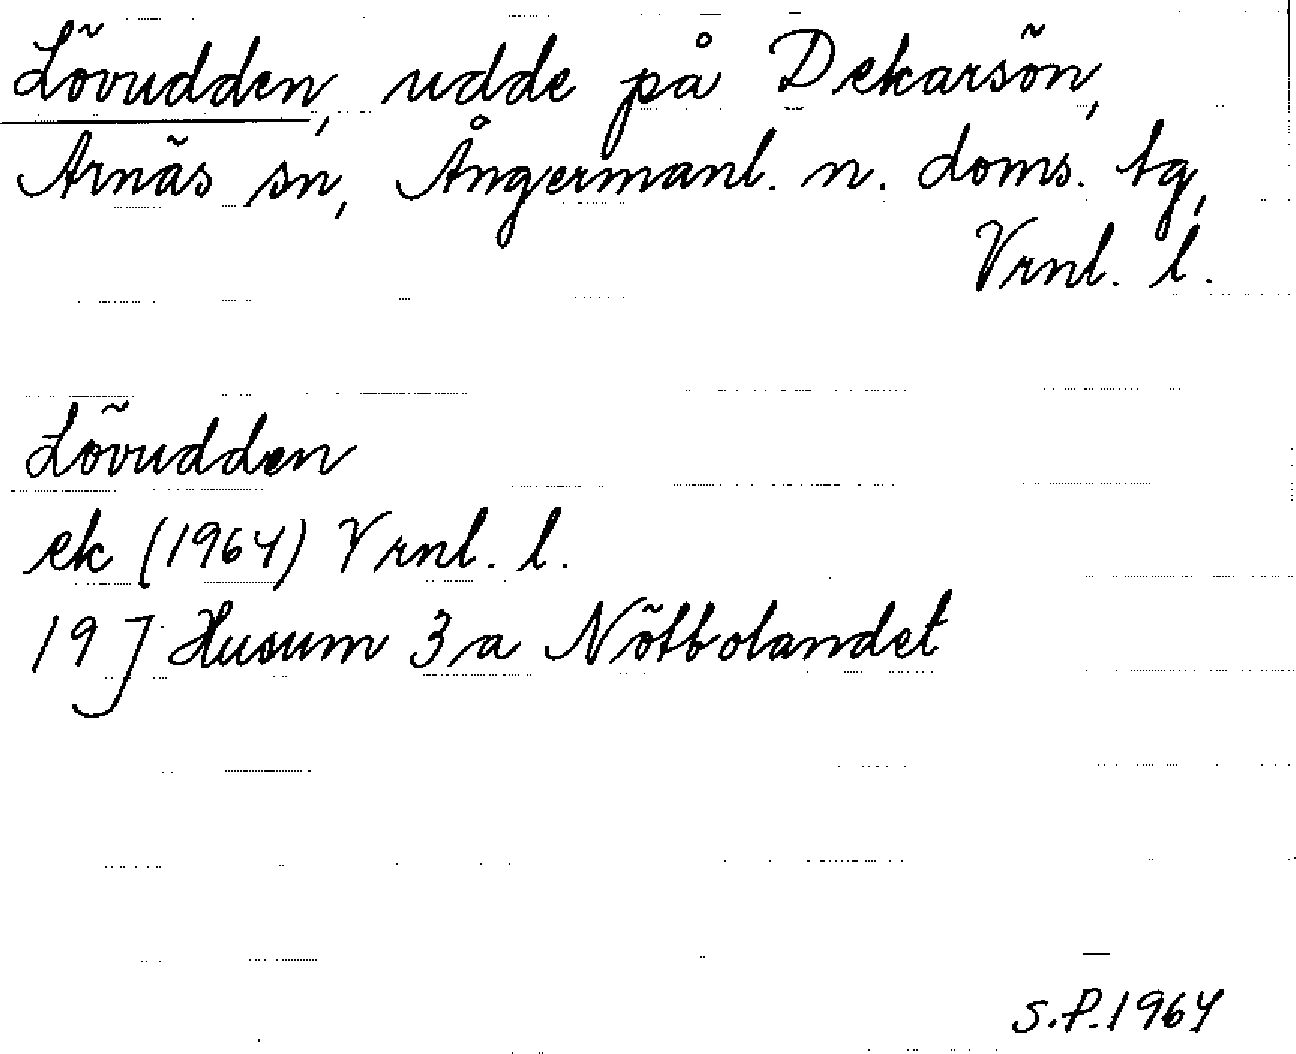 Lövudden, udde på Dekarsön,
Arnäs sn, Ångermanl. n. doms. tg,
Vrnl. l.
Lövudden
ek (1964) Vrnl. l.
19 J Husum 3 a Nötbolandet
S.P. 1964